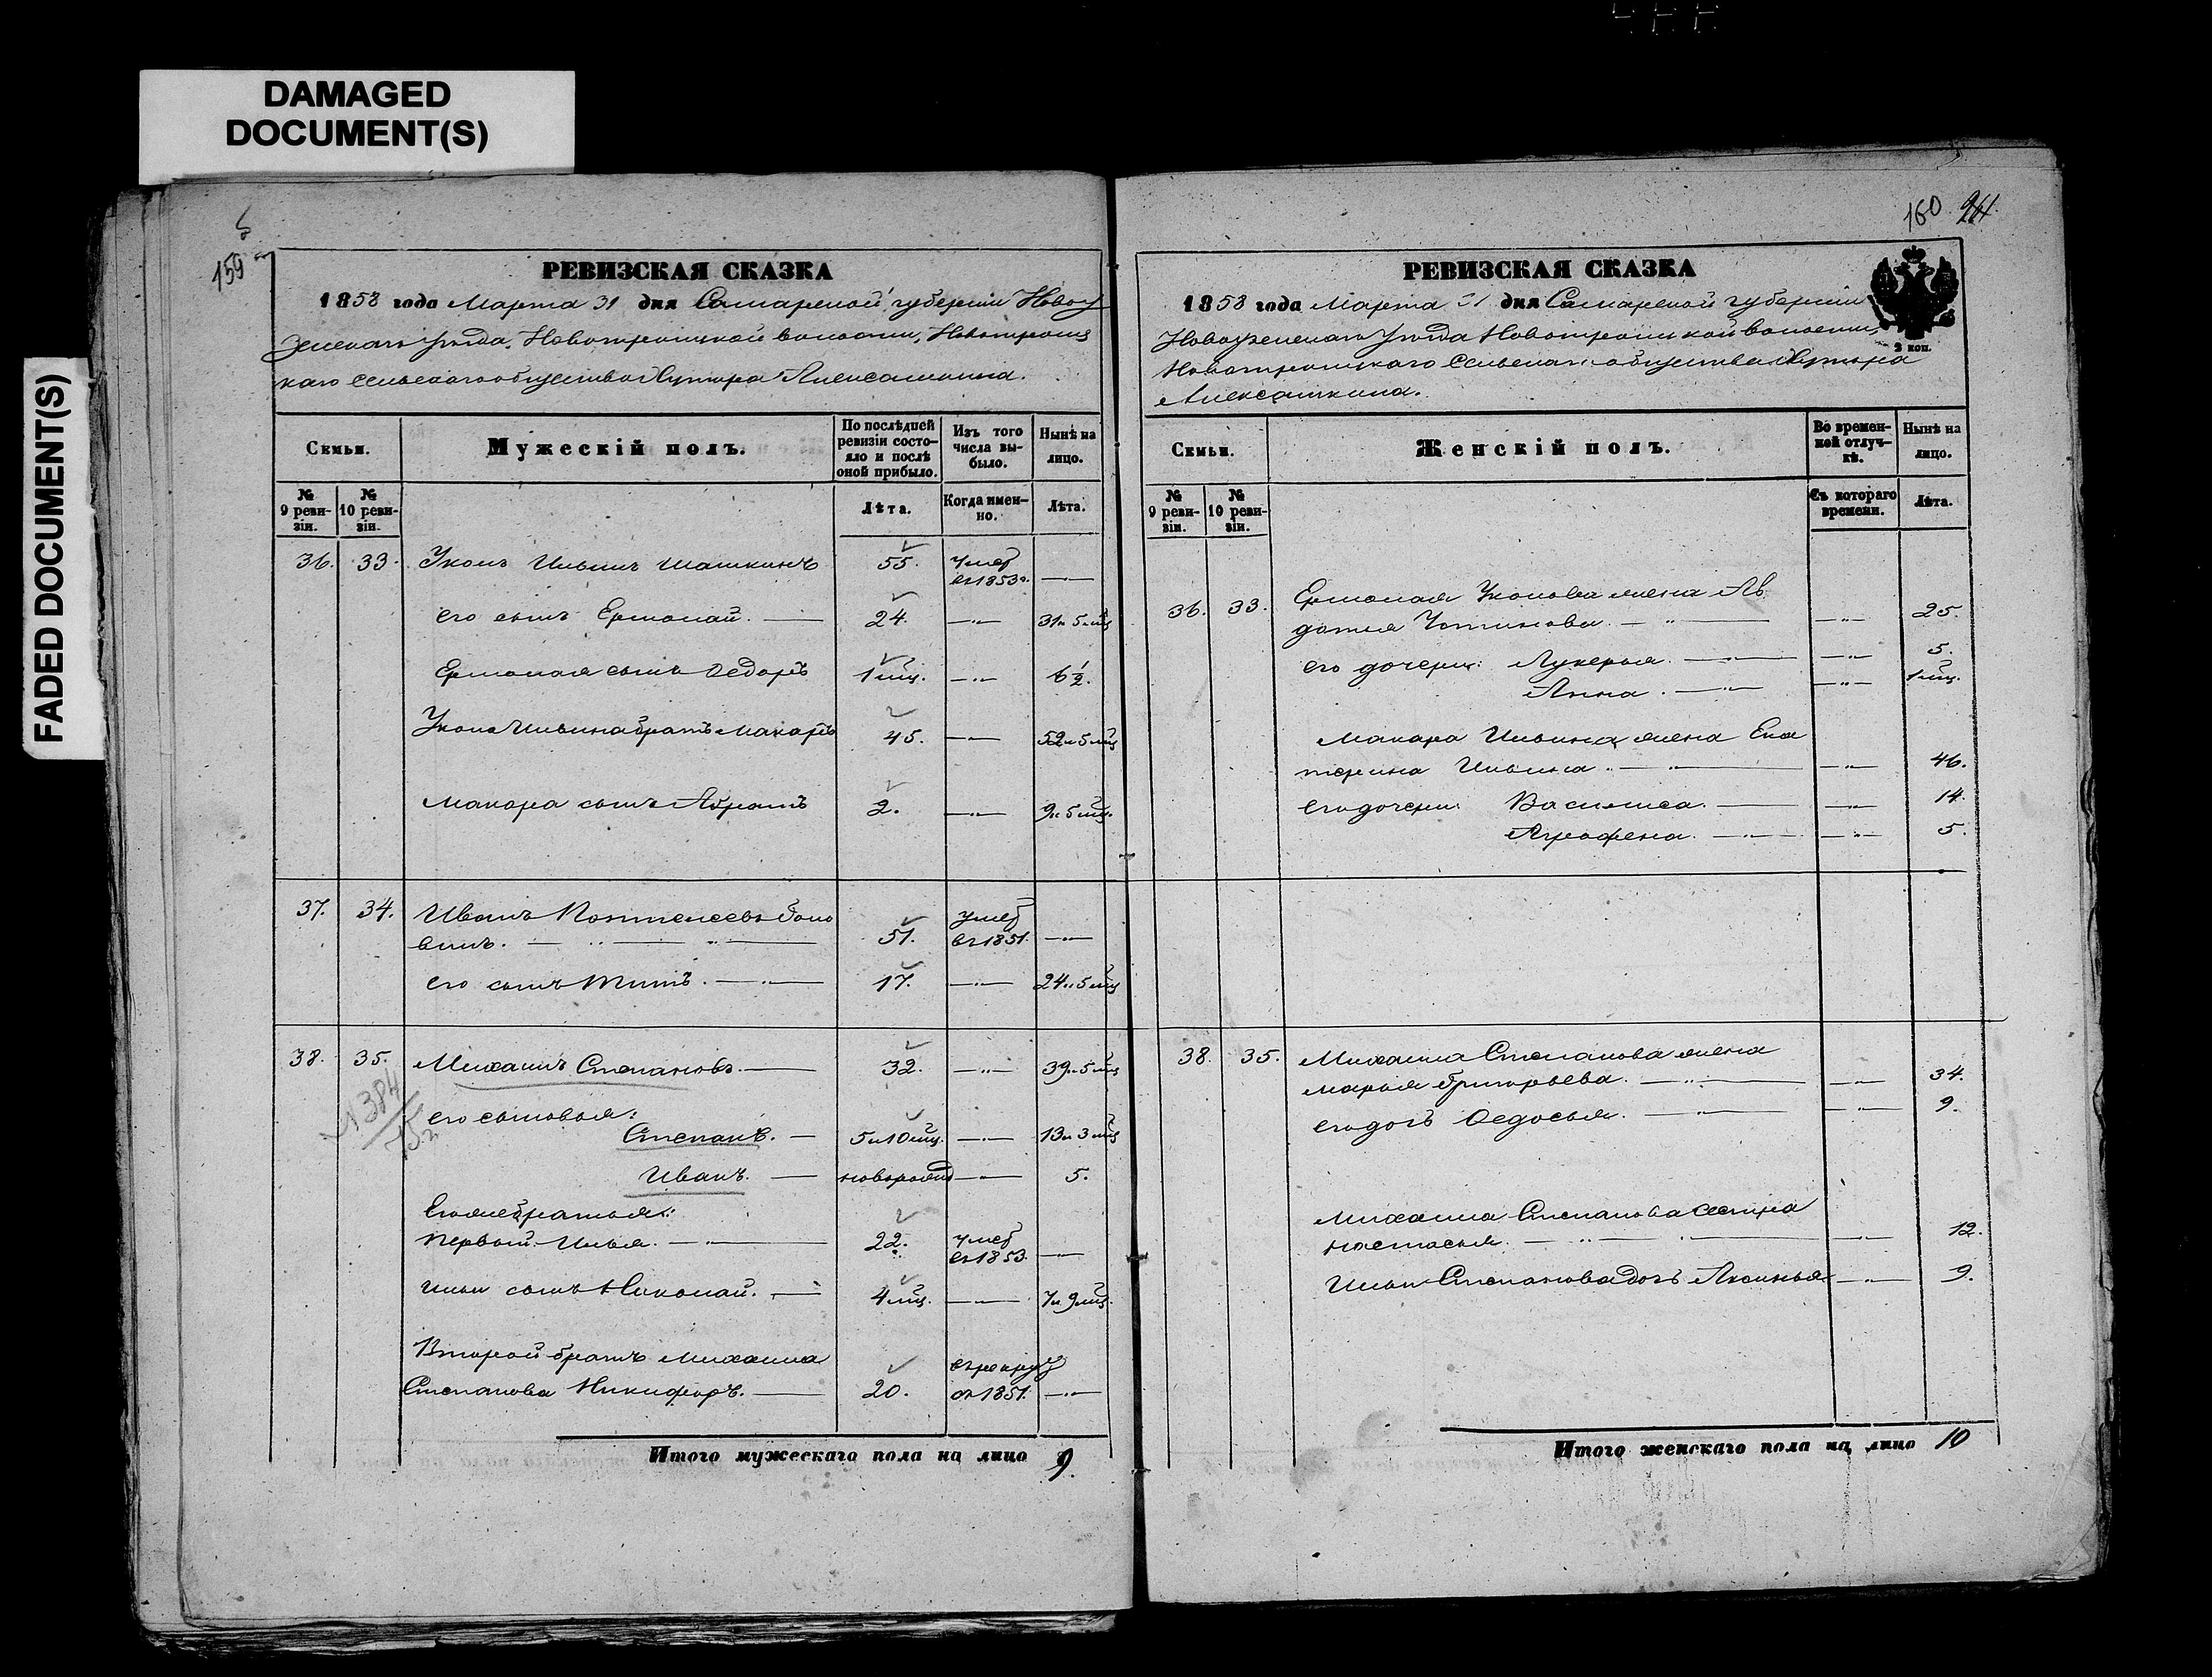 DAMAGED
DOCUMENT(S)
FADED DOCUMENT(S)
159
РЕВИЗСКАЯ СКАЗКА
1858 года Марта 31 дня Самарской губернии Новоу
зенскаго уѣзда, Новотроицкой волости, Новотроиц
каго сельскаго общества Хутора Алексашкина.
Семьи.
Мужескій полъ.
По послѣдней ревизіи состояло и послѣ оной прибыло.
Изъ того числа выбыло.
Нынѣ на лицо.
№ 9 ревизіи.
№ 10 ревизіи.
Лѣта.
Когда именно.
Лѣта.
36. 33. Ильинъ Шашкинъ 55. умеръ
въ 1853 г.
его сынъ Ермолай. 24. 31 и 5 мц
Ермолая сынъ Ѳедоръ 1 мц. 6½.
Ильина братъ Макаръ 45. 52 и 5 мц
Макара сынъ Абрамъ 2. 9 и 5 мц.
37. 34. Иванъ Понтелеевъ
51. умеръ
въ 1851.
его сынъ Титъ. 17. 24 и 5 мц
38. 35. Михаилъ Степановъ. 32. 39 и 5 мц
его сыновья:
Степанъ. 5 и 10 мц. 13 и 3 мц
Иванъ. новорожд 5.
Его же братья:
первый Илья. 22. умеръ
въ 1853.
Ильи сынъ Николай. 4 мц. 7 и 9 мц.
Второй братъ Михаила
Степанова Никифоръ. 20. въ рекру
1851.
Итого мужескаго пола на лицо 9.
160
РЕВИЗСКАЯ СКАЗКА
1858 года Марта 31 дня Самарской губернии
Новоузенскаго уѣзда Новотроицкой волости,
Новотроицкаго сельскаго общества Хутора
Алексашкина.
2 коп.
Семьи.
Женскій полъ.
Во временной отлучкѣ.
Нынѣ на лицо.
№ 9 ревизіи.
№ 10 ревизіи.
Съ котораго времени.
Лѣта.
36. 33. Ермолая жена Ав
дотья 25.
его дочери: Лукерья. 5.
Анна. 1 мц.
Макара Ильина жена Ека
терина Ильина. 46.
его дочери Василиса. 14.
Аграфена. 5.
38. 35. Михаила Степанова жена
Марья Григорьева. 34.
его дочь Ѳедосья. 9.
Михаила Степанова сестра
Настасья. 12.
Ильи Степанова дочь Аксинья 9.
Итого женскаго пола на лицо 10